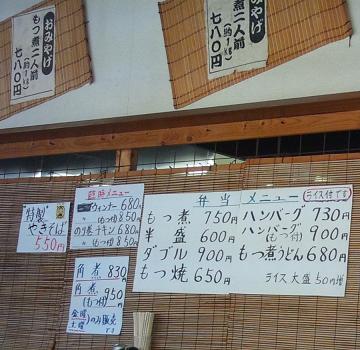 おみやげ
もつ煮二人前
(約1kg)
七八〇円
おみやげ
もつ煮二人前
(約1kg)
七八〇円
"特製"
やきそば
550円
臨時メニュー
ウィンナー 680
〃 もつ付 850
のり巻チキン 680
〃 もつ付 850
角煮 830
角煮 950
(もつ付)
金曜
土曜 のみ販売
です
弁当 メニュー ライス付です
もつ煮 750円
半盛 600円
ダブル 900円
もつ焼 650円
ハンバーグ 730円
ハンバーグ 900円
(もつ付)
もつ煮うどん 680円
ライス大盛 50円増